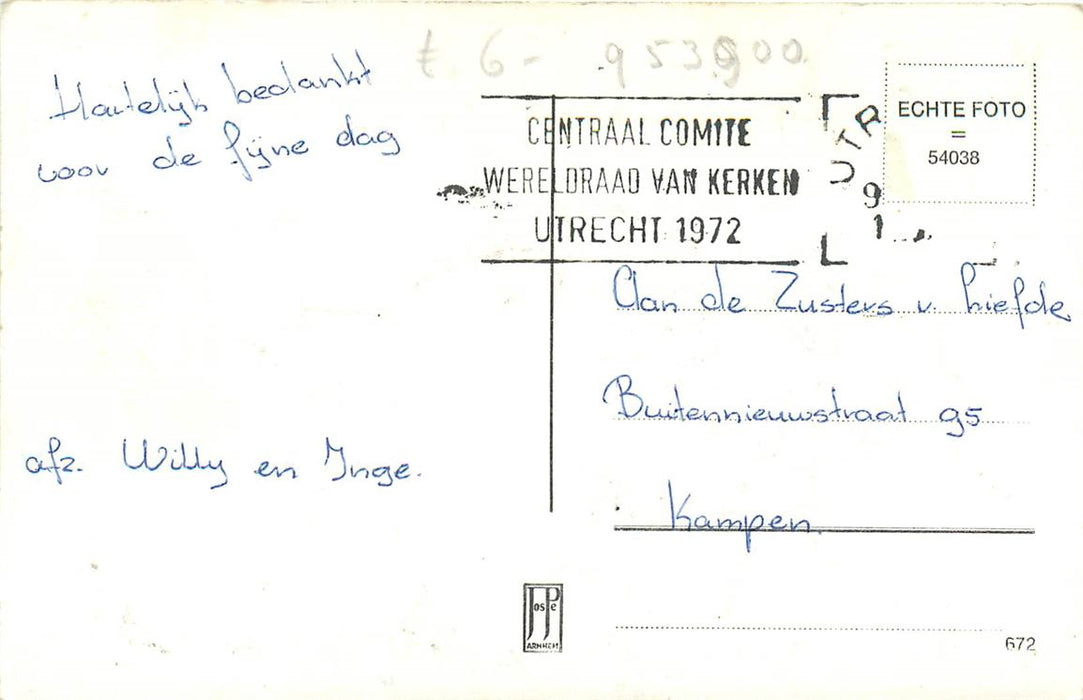 f 6- 953900
Hartelijk bedankt
voor de fijne dag
afz. Willy en Inge.
CENTRAAL COMITE
WERELDRAAD VAN KERKEN
UTRECHT 1972
UTR
9
1
ECHTE FOTO
=
54038
Aan de Zusters v. Liefde
Buitennieuwstraat 95
Kampen.
JosPe
ARNHEM
672